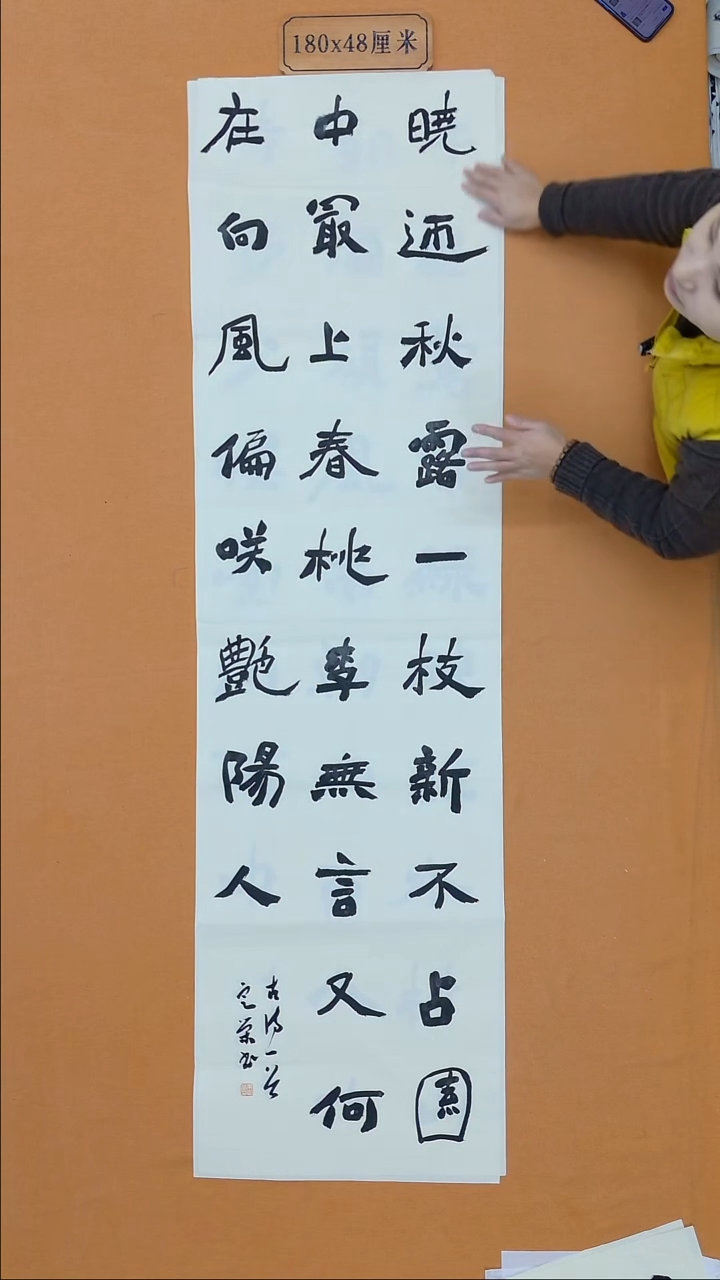 180x48厘米
曉迎秋露一枝新不占園
中最上春桃李無言又何
在向風偏咲艷陽人
古詩一首
定榮書